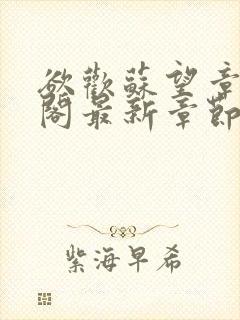 欲歡蘇望章
閣最新章節
紫海早希